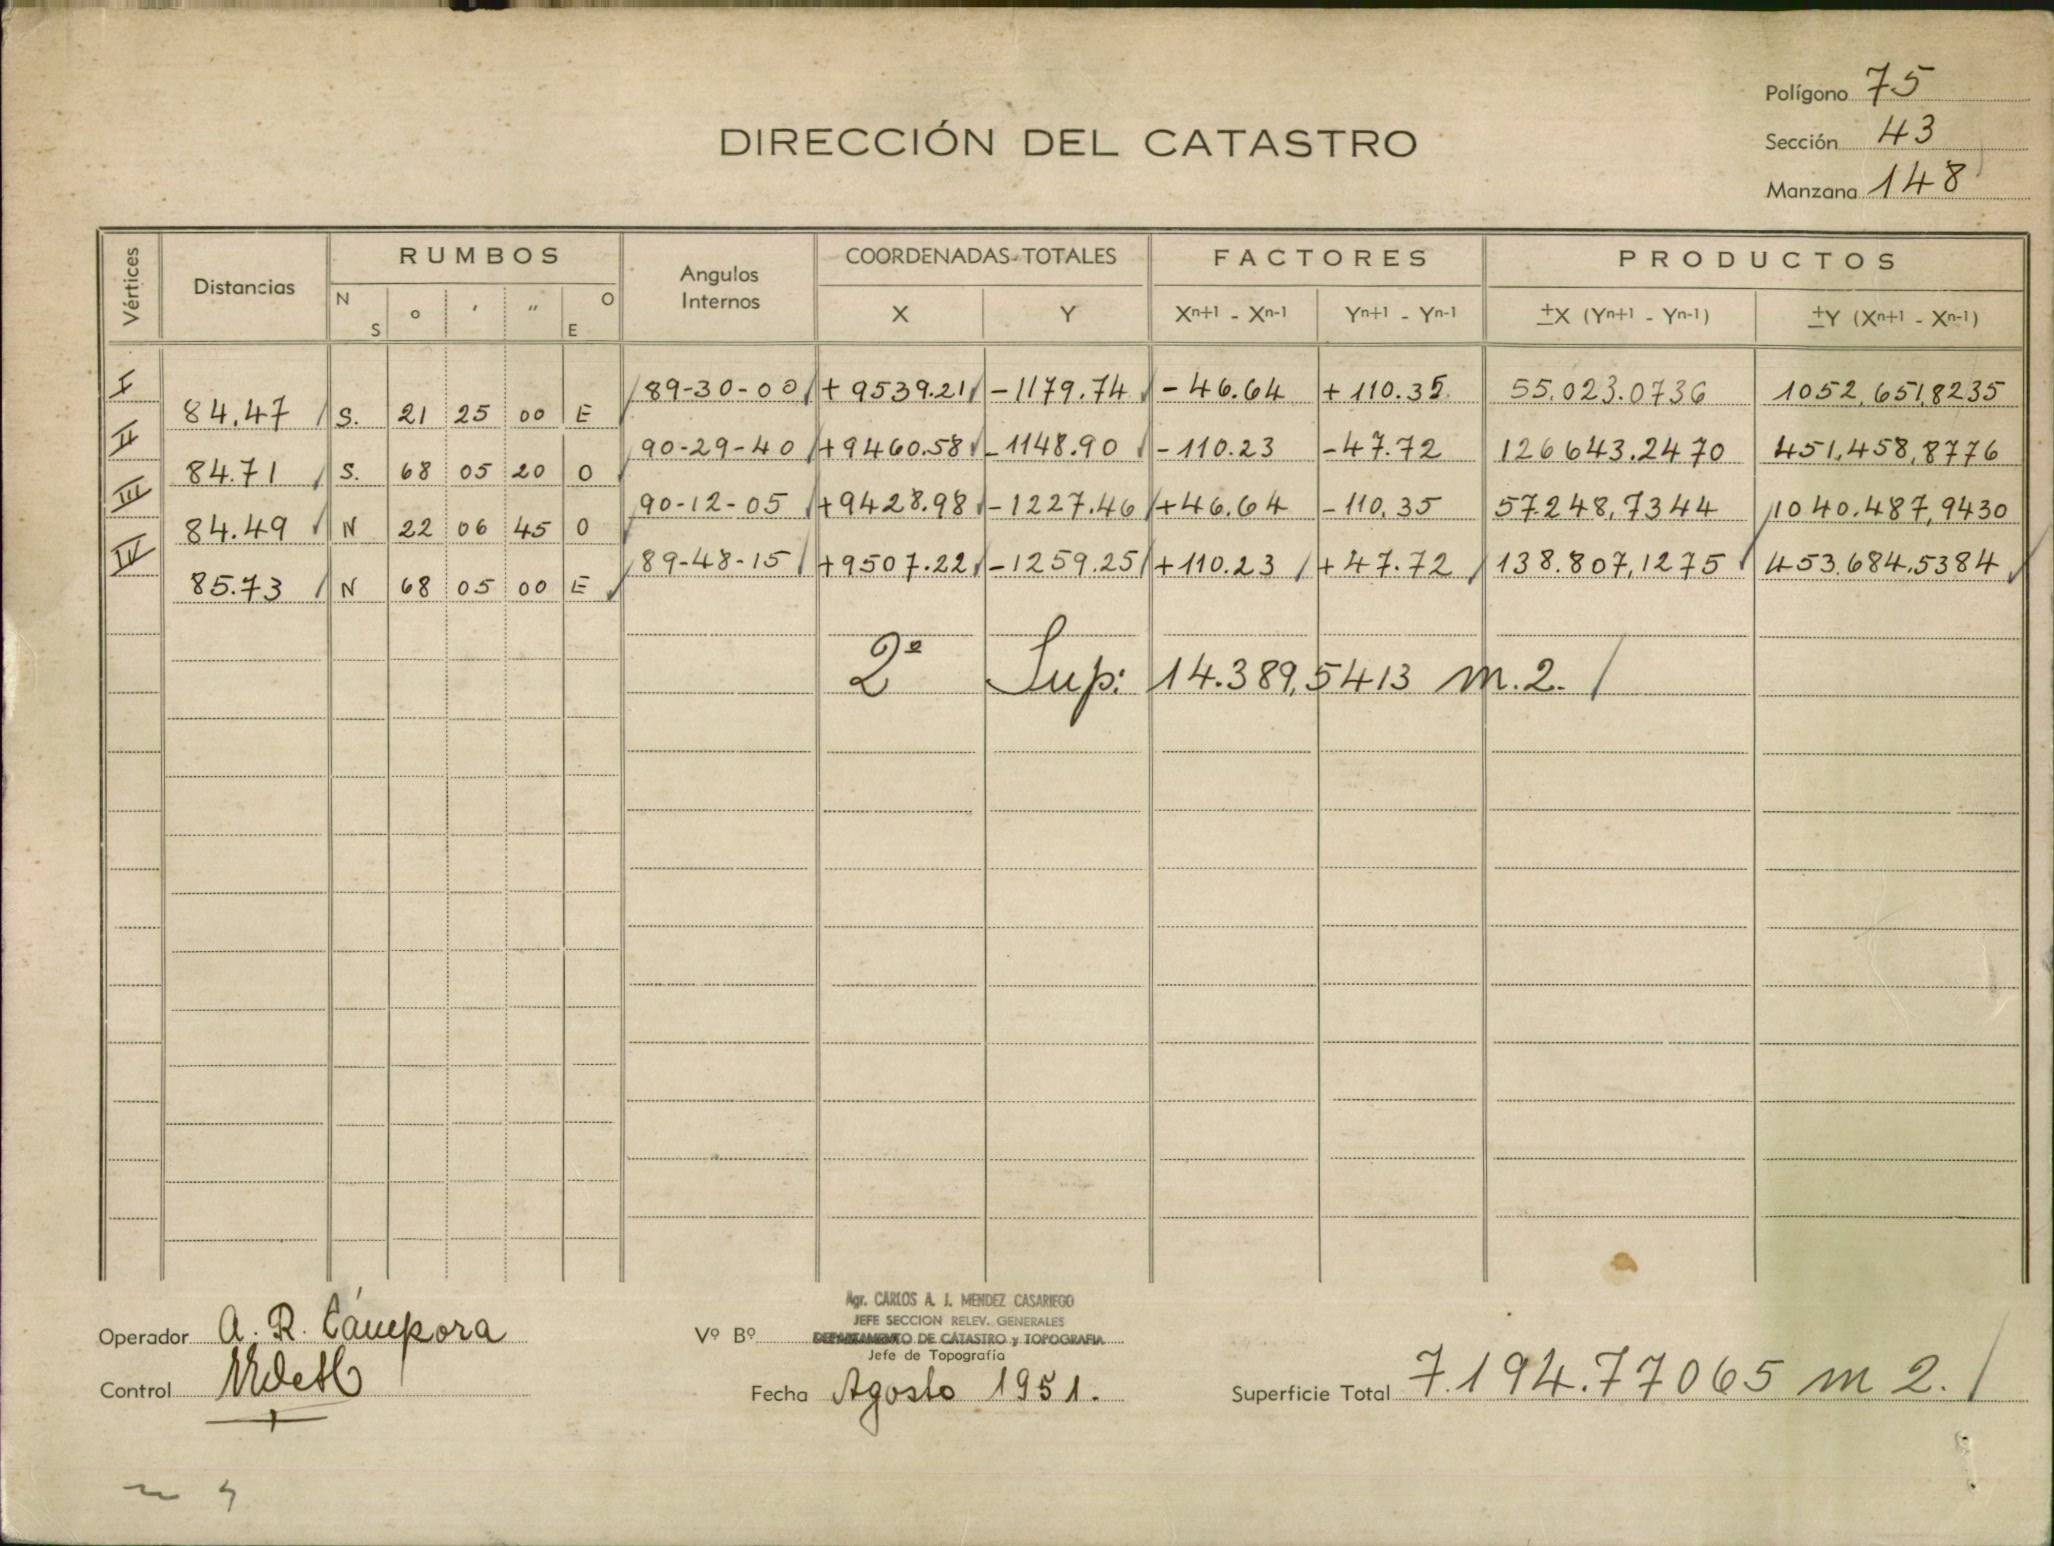 Polígono 75
DIRECCIÓN DEL CATASTRO
Sección 43
Manzana 148
Vértices Distancias RUMBOS Angulos Internos COORDENADAS-TOTALES FACTORES PRODUCTOS
N S ° ' " O E X Y Xn+1 - Xn-1 Yn+1 - Yn-1 ±X (Yn+1 - Yn-1) ±Y (Xn+1 - Xn-1)
I 89-30-00 +9539.21 -1179.74 -46.64 +110.35 55.023.0736 1052.651,8235
84.47 S. 21 25 00 E
II 90-29-40 +9460.58 -1148.90 -110.23 -47.72 126643.2470 451.458,8776
84.71 S. 68 05 20 O
III 90-12-05 +9428.98 -1227.46 +46.64 -110.35 57248,7344 1040.487,9430
84.49 N 22 06 45 O
IV 89-48-15 +9507.22 -1259.25 +110.23 +47.72 138.807,1275 453.684.5384
85.73 N 68 05 00 E
2ª Sup: 14.389,5413 m.2.
Agr. CARLOS A. J. MENDEZ CASARIEGO
JEFE SECCION RELEV. GENERALES
Operador A. R. Cámpora Vº Bº DEPARTAMENTO DE CATASTRO y TOPOGRAFIA
Jefe de Topografía
Control Fecha Agosto 1951. Superficie Total 7.194.77065 m 2.